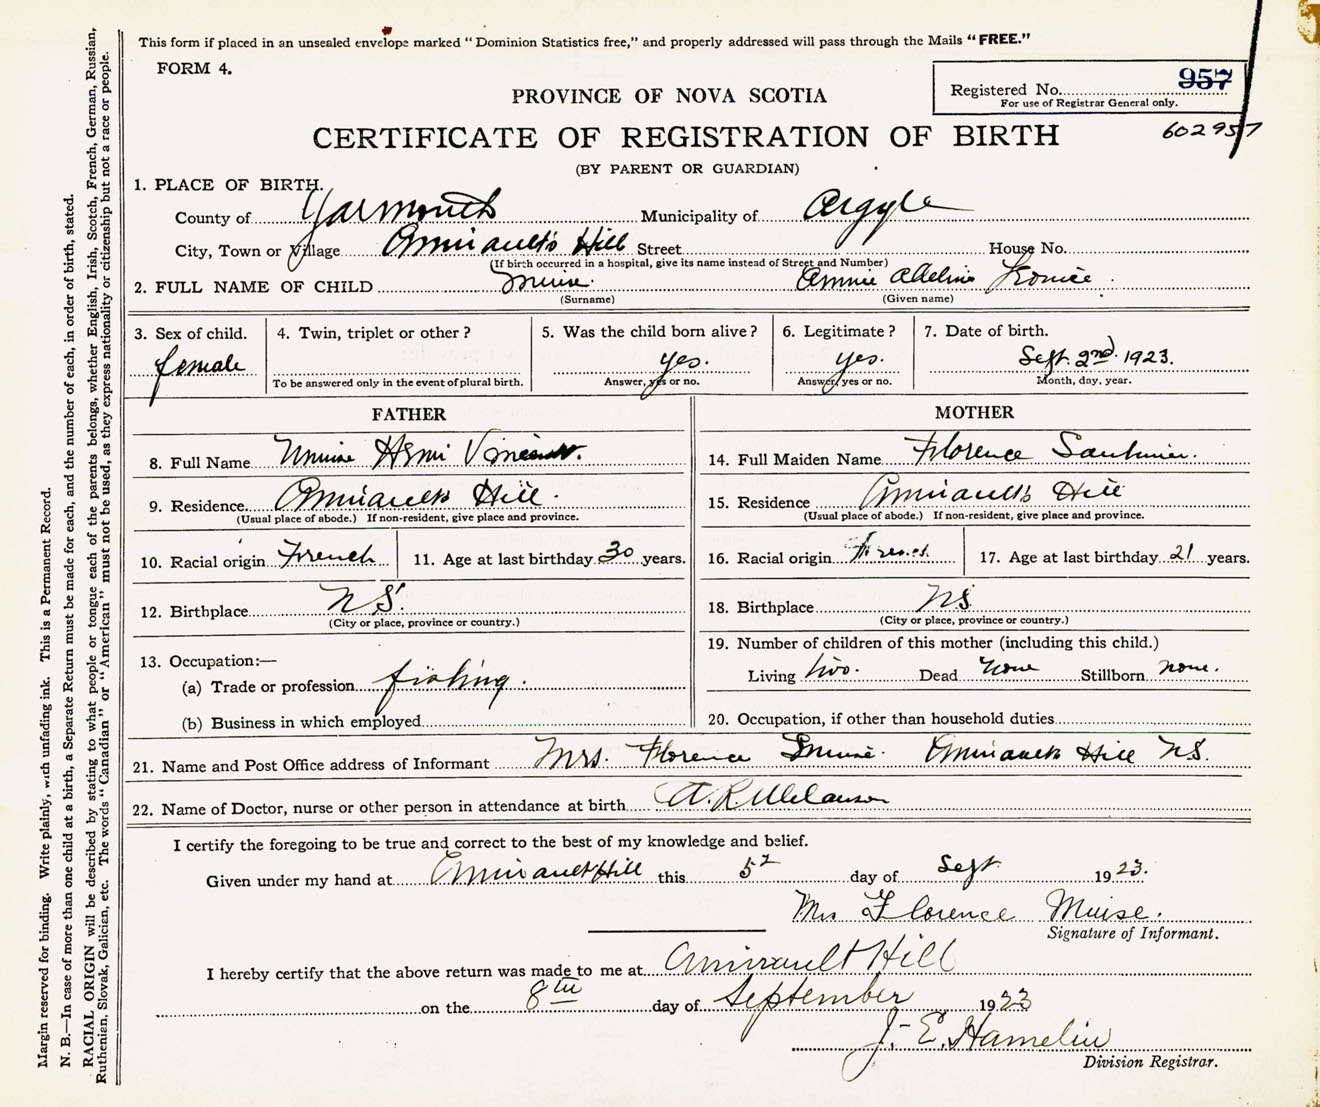 This form if placed in an unsealed envelope marked “Dominion Statistics free,” and properly addressed will pass through the Mails “FREE.”
FORM 4.
Registered No. 957
For use of Registrar General only.
602957
PROVINCE OF NOVA SCOTIA
CERTIFICATE OF REGISTRATION OF BIRTH
(BY PARENT OR GUARDIAN)
1. PLACE OF BIRTH.
County of Yarmouth Municipality of Argyle
City, Town or Village Amirault's Hill Street House No.
(If birth occurred in a hospital, give its name instead of Street and Number)
2. FULL NAME OF CHILD Muise. Annie Adeline
(Surname) (Given name)
3. Sex of child. female
4. Twin, triplet or other?
To be answered only in the event of plural birth.
5. Was the child born alive? yes.
Answer, yes or no.
6. Legitimate? yes.
Answer, yes or no.
7. Date of birth. Sept. 2nd. 1923.
Month, day, year.
FATHER
8. Full Name Muise Henri Vincent.
9. Residence Amiraults Hill.
(Usual place of abode.) If non-resident, give place and province.
10. Racial origin French
11. Age at last birthday 30 years.
12. Birthplace N.S.
(City or place, province or country.)
13. Occupation:—
(a) Trade or profession fishing.
(b) Business in which employed
MOTHER
14. Full Maiden Name Florence Saulnier.
15. Residence Amirault's Hill
(Usual place of abode.) If non-resident, give place and province.
16. Racial origin French
17. Age at last birthday 21 years.
18. Birthplace N.S.
(City or place, province or country.)
19. Number of children of this mother (including this child.)
Living two. Dead none Stillborn none.
20. Occupation, if other than household duties
21. Name and Post Office address of Informant Mrs. Florence Muise. Amiraults Hill N.S.
22. Name of Doctor, nurse or other person in attendance at birth A. R. Melanson
I certify the foregoing to be true and correct to the best of my knowledge and belief.
Given under my hand at Amirault Hill this 5 day of Sept. 1923.
Mrs Florence Muise.
Signature of Informant.
I hereby certify that the above return was made to me at Amirault Hill
on the 8th day of September 1923
J. E. Hamelin
Division Registrar.
Margin reserved for binding. Write plainly, with unfading ink. This is a Permanent Record.
N. B.—In case of more than one child at a birth, a Separate Return must be made for each, and the number of each, in order of birth, stated.
RACIAL ORIGIN will be described by stating to what people or tongue each of the parents belongs, whether English, Irish, Scotch, French, German, Russian,
Ruthenian, Slovak, Galician, etc. The words “Canadian” or “American” must not be used, as they express nationality or citizenship but not a race or people.